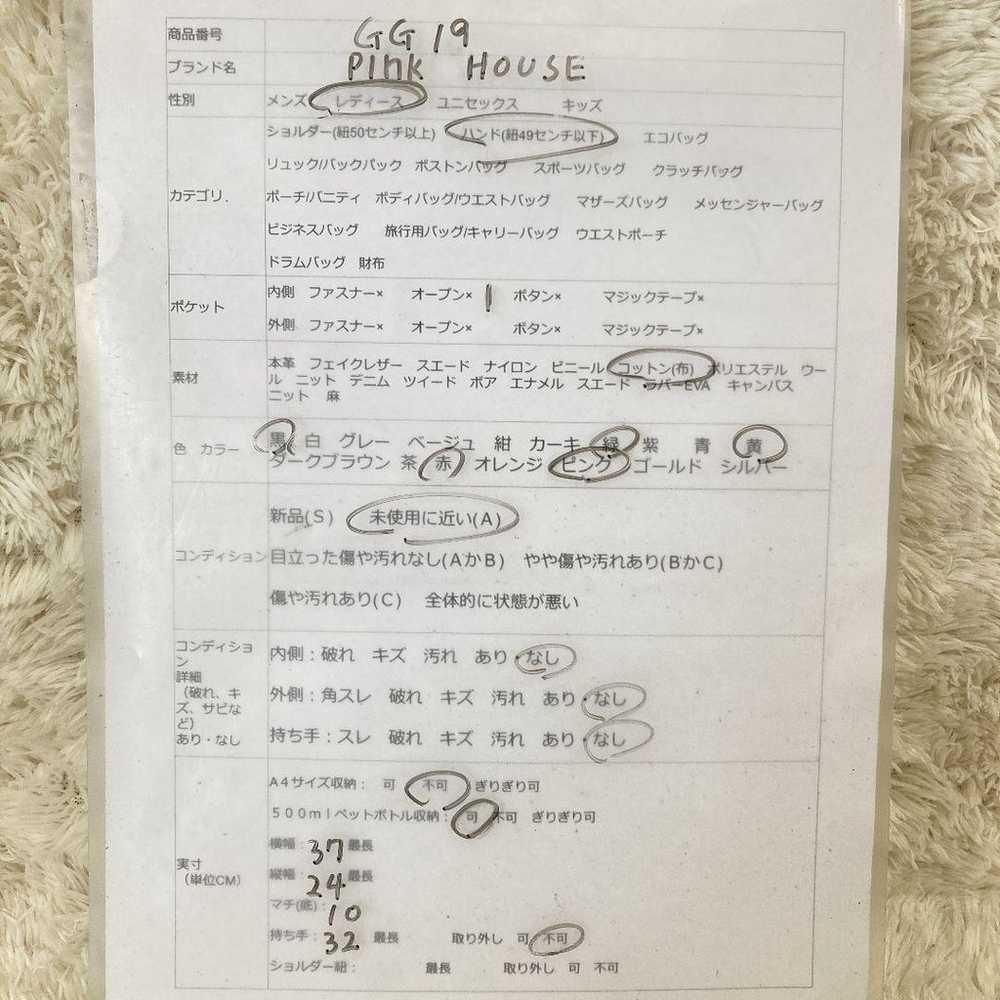 商品番号 GG19
ブランド名 PInk HOUSE
性別 メンズ レディース ユニセックス キッズ
ショルダー(紐50センチ以上) ハンド(紐49センチ以下) エコバッグ
リュック/バックパック ボストンバッグ スポーツバッグ クラッチバッグ
カテゴリ. ポーチ/バニティ ボディバッグ/ウエストバッグ マザーズバッグ メッセンジャーバッグ
ビジネスバッグ 旅行用バッグ/キャリーバッグ ウエストポーチ
ドラムバッグ 財布
ポケット
内側 ファスナー× オープン× 1 ボタン× マジックテープ×
外側 ファスナー× オープン× ボタン× マジックテープ×
素材
本革 フェイクレザー スエード ナイロン ビニール コットン(布) ポリエステル ウー
ル ニット デニム ツイード ボア エナメル スエード ラバーEVA キャンバス
ニット 麻
色 カラー
黒 白 グレー ベージュ 紺 カーキ 緑 紫 青 黄
ダークブラウン 茶 赤 オレンジ ピンク ゴールド シルバー
新品(S) 未使用に近い(A)
コンディション 目立った傷や汚れなし(AかB) やや傷や汚れあり(BかC)
傷や汚れあり(C) 全体的に状態が悪い
コンディショ
ン
詳細
(破れ、キ
ズ、サビな
ど)
あり・なし
内側：破れ キズ 汚れ あり・なし
外側：角スレ 破れ キズ 汚れ あり・なし
持ち手：スレ 破れ キズ 汚れ あり・なし
実寸
(単位CM)
A4サイズ収納： 可 不可 ぎりぎり可
500mlペットボトル収納： 可 不可 ぎりぎり可
横幅：37 最長
縦幅：24 最長
マチ(底)：10
持ち手：32 最長 取り外し 可 不可
ショルダー紐： 最長 取り外し 可 不可